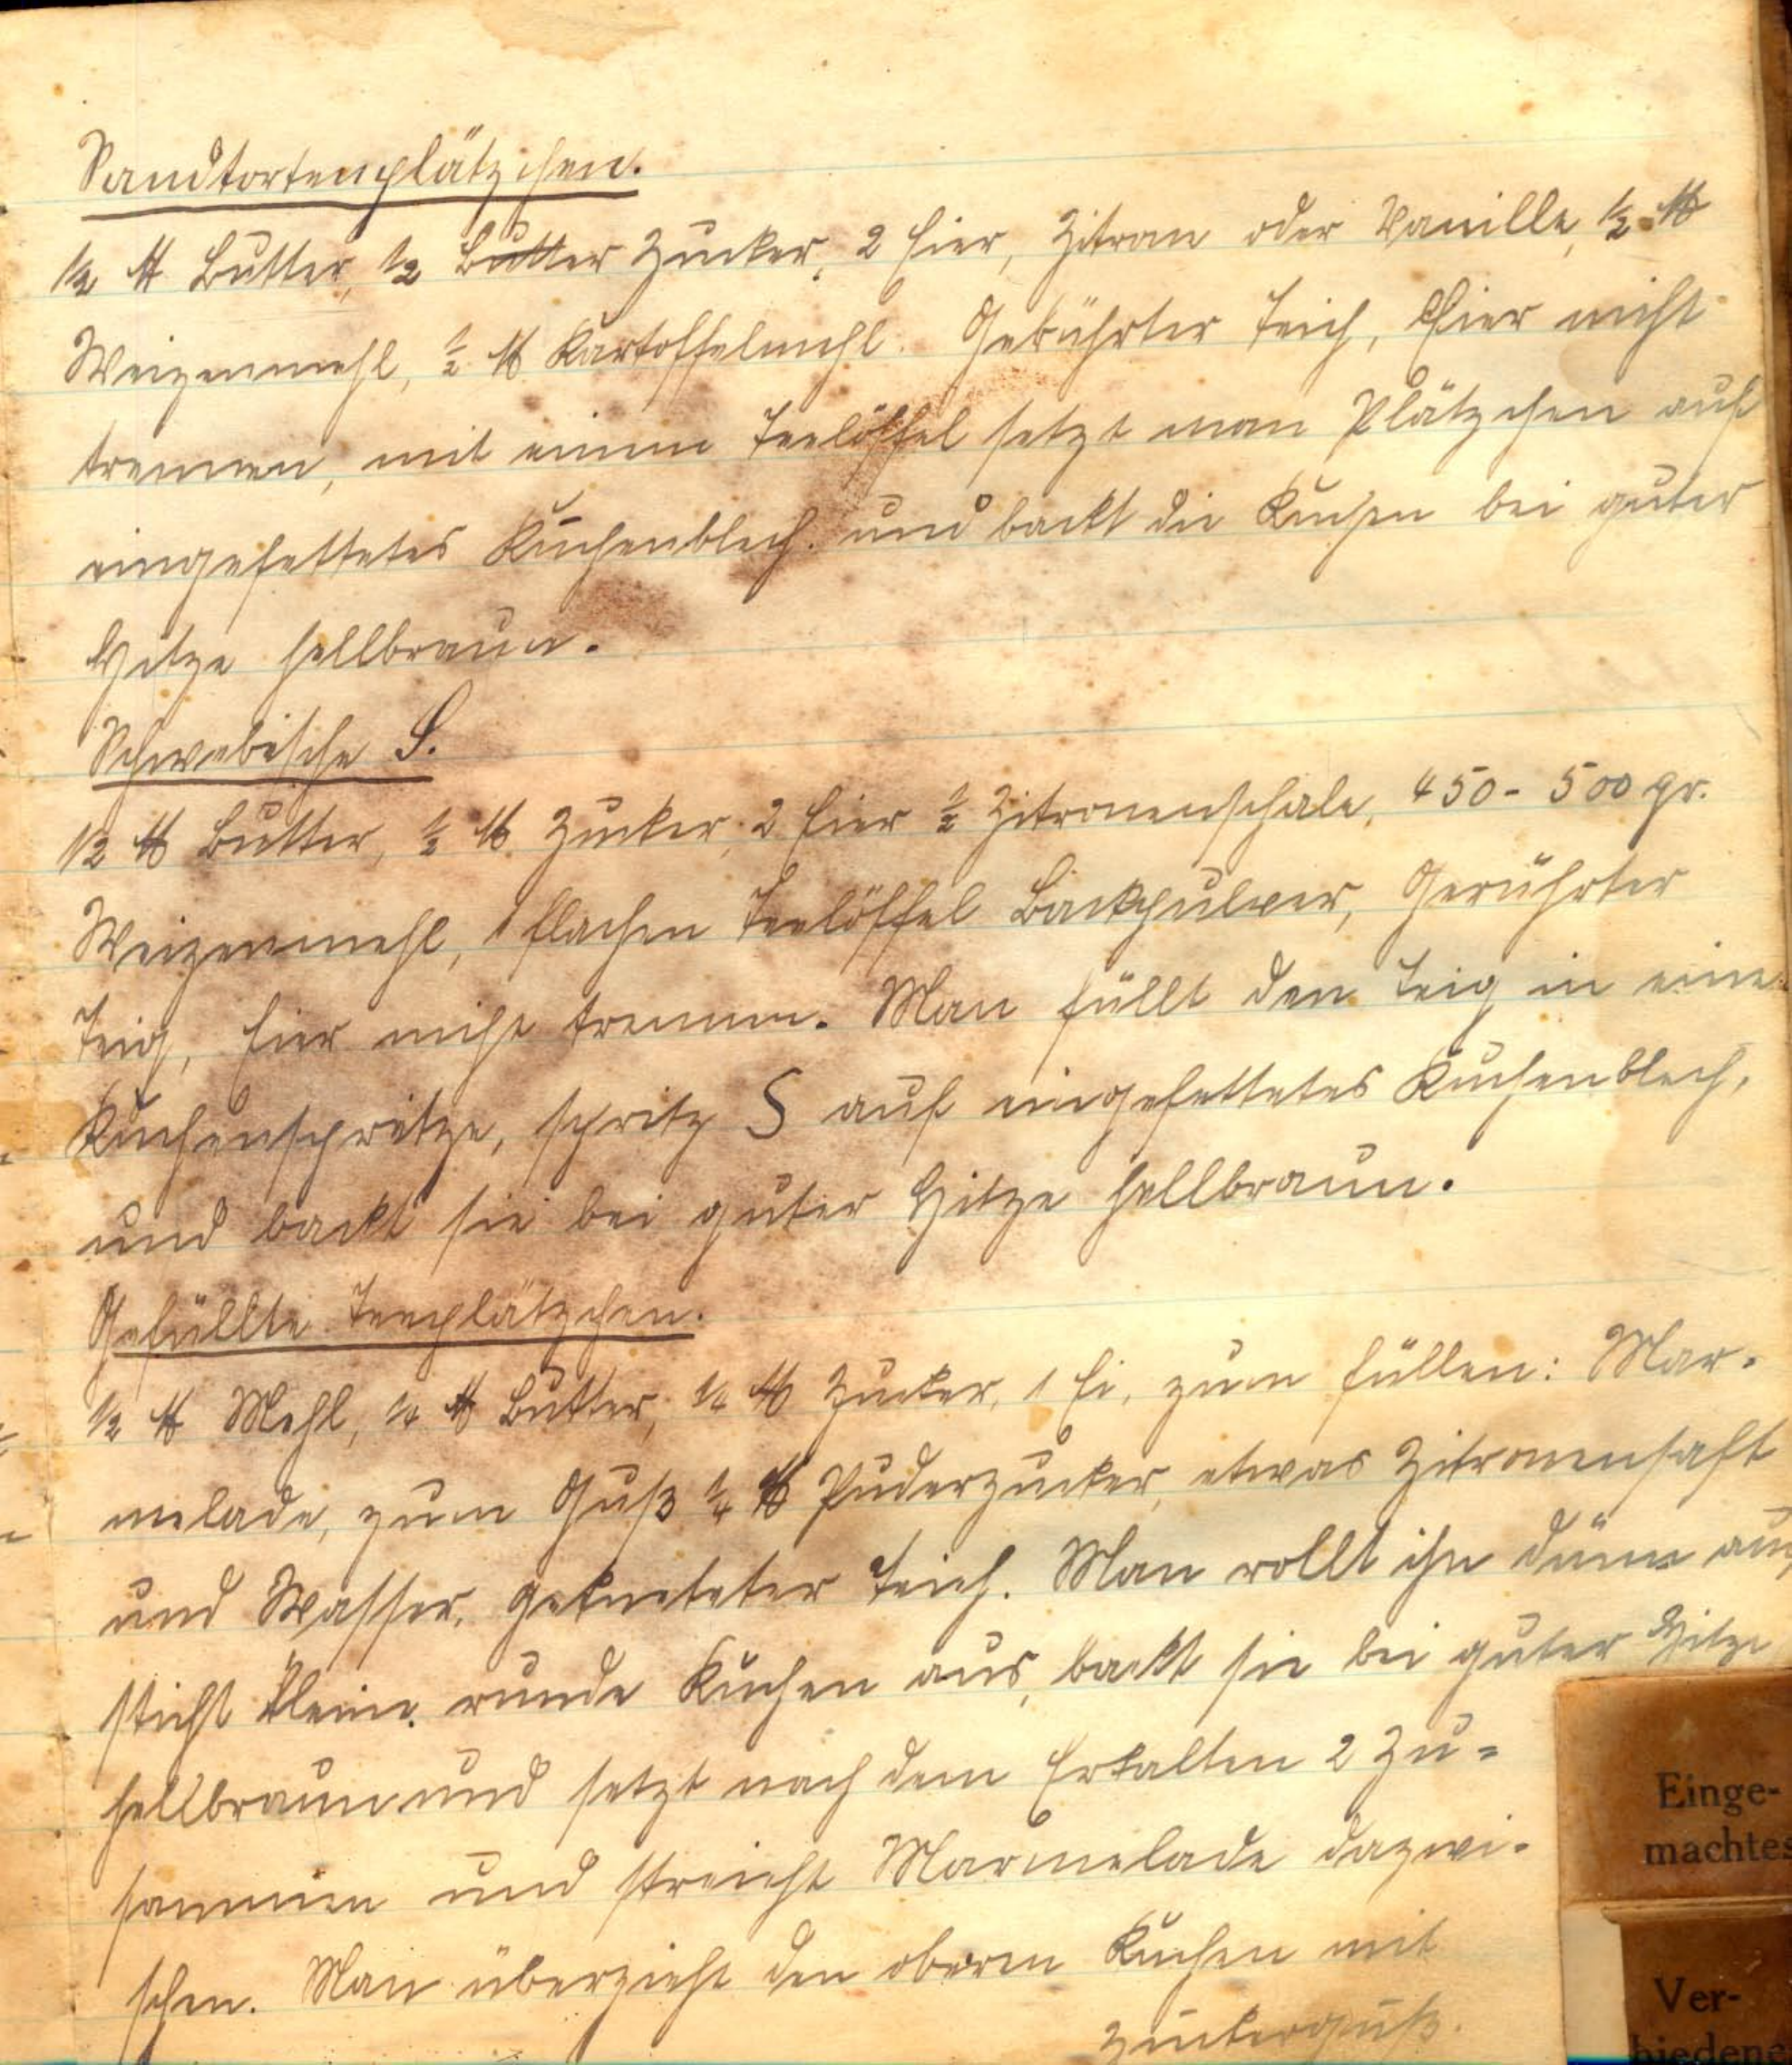 Sandtortenplätzchen.
1/2 ℔ Butter, 1/2 Butter Zucker, 2 Eier, Zitron oder Vanille, 1/2 ℔
Weizenmehl, 1/2 ℔ Kartoffelmehl. Gerührter Teich, Eier nicht
trennen, mit einem Teelöffel setzt man Plätzchen auf
eingefettetes Kuchenblech und backt die Kuchen bei guter
Hitze hellbraun.
Schwebische S.
1/2 ℔ Butter, 1/2 ℔ Zucker, 2 Eier 1/2 Zitronenschale, 450 - 500 gr.
Weizenmehl, 1 flachen Teelöffel Backpulver, Gerührter
Teig, Eier nicht trennen. Man füllt den Teig in eine
Kuchenspritze, spritz S auf eingefettetes Kuchenblech,
und backt sie bei guter Hitze hellbraun.
Gefüllte Teeplätzchen.
1/2 ℔ Mehl, 1/4 ℔ Butter, 1/4 ℔ Zucker, 1 Ei, zum füllen: Mar-
melade, zum Guß 1/4 ℔ Puderzucker, etwas Zitronensaft
und Wasser, gekneteter Teich. Man rollt ihn dünn aus
sticht kleine runde Kuchen aus, backt sie bei guter Hitze
hellbraun und setzt nach dem Erkalten 2 zu=
sammen und streicht Marmelade dazwi-
schen. Man überzieht den oberen Kuchen mit
Zuckerguß.
Einge-
machtes
Ver-
hiedene